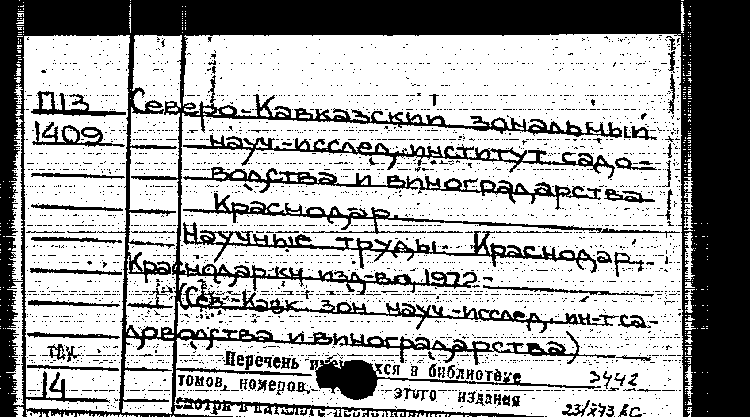 П13 Северо-Кавказский зональный
1409 науч.-исслед. институт садо-
водства и виноградарства
Краснодар.
Научные труды. Краснодар,
Краснодар. кн. изд-во, 1972-
(Сев.-Кавк. зон. науч.-исслед. ин-т са-
доводства и виноградарства)
Перечень в библиотеке
14 томов, номеров, этого издания 3442
смотри в каталоге